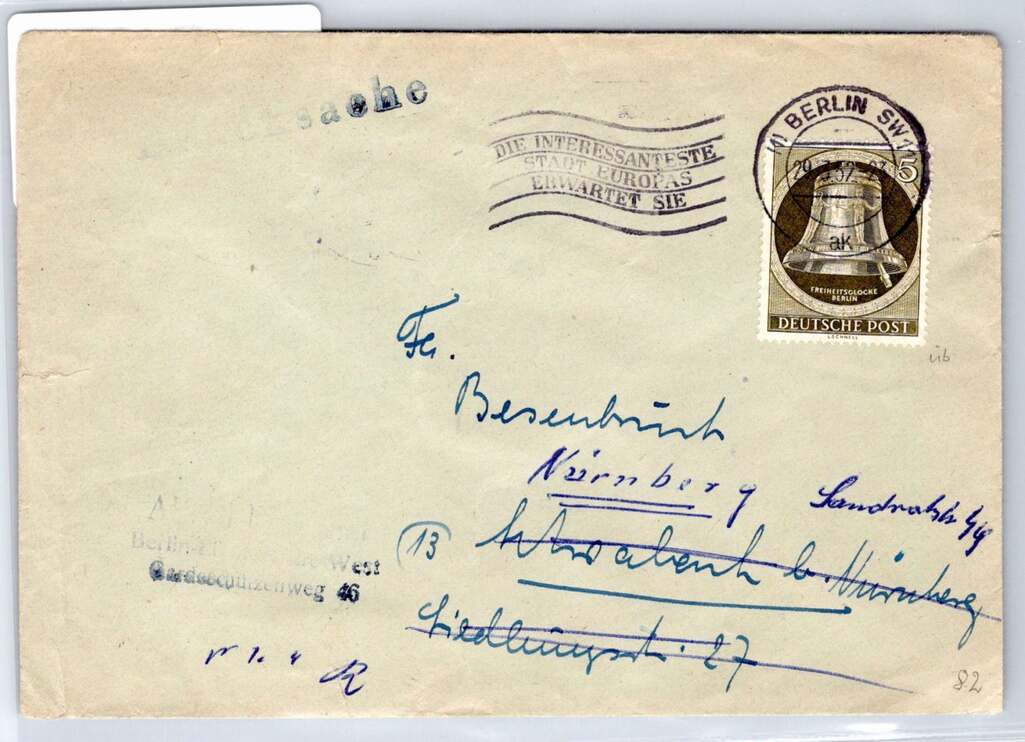 sache
DIE INTERESSANTESTE
STADT EUROPAS
ERWARTET SIE
BERLIN SW
ak
5
FREIHEITSGLOCKE
BERLIN
DEUTSCHE POST
L.SCHNELL
Fr.
Besenbruch
Nürnberg
(13 Schwabach b. Nürnberg
Siedlungsstr. 27
Berlin
West
Gardeschützenweg 46
82